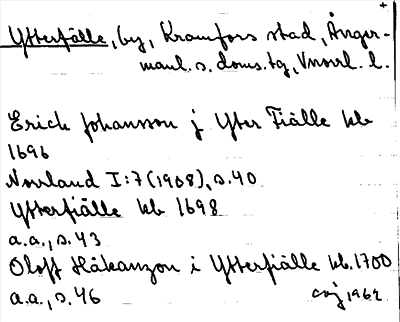 Ytterfälle, by, Kramfors stad, Ånger-
manl. s. doms. tg, Vnorrl. l.
Erich Johansson j Yter Fiälle kb
1696
Norrland I:7 (1908), s. 40
Ytterfiälle kb 1698
a.a., s. 43
Oloff Håkanzon i Ytterfiälle kb. 1700
a.a., s. 46
1962